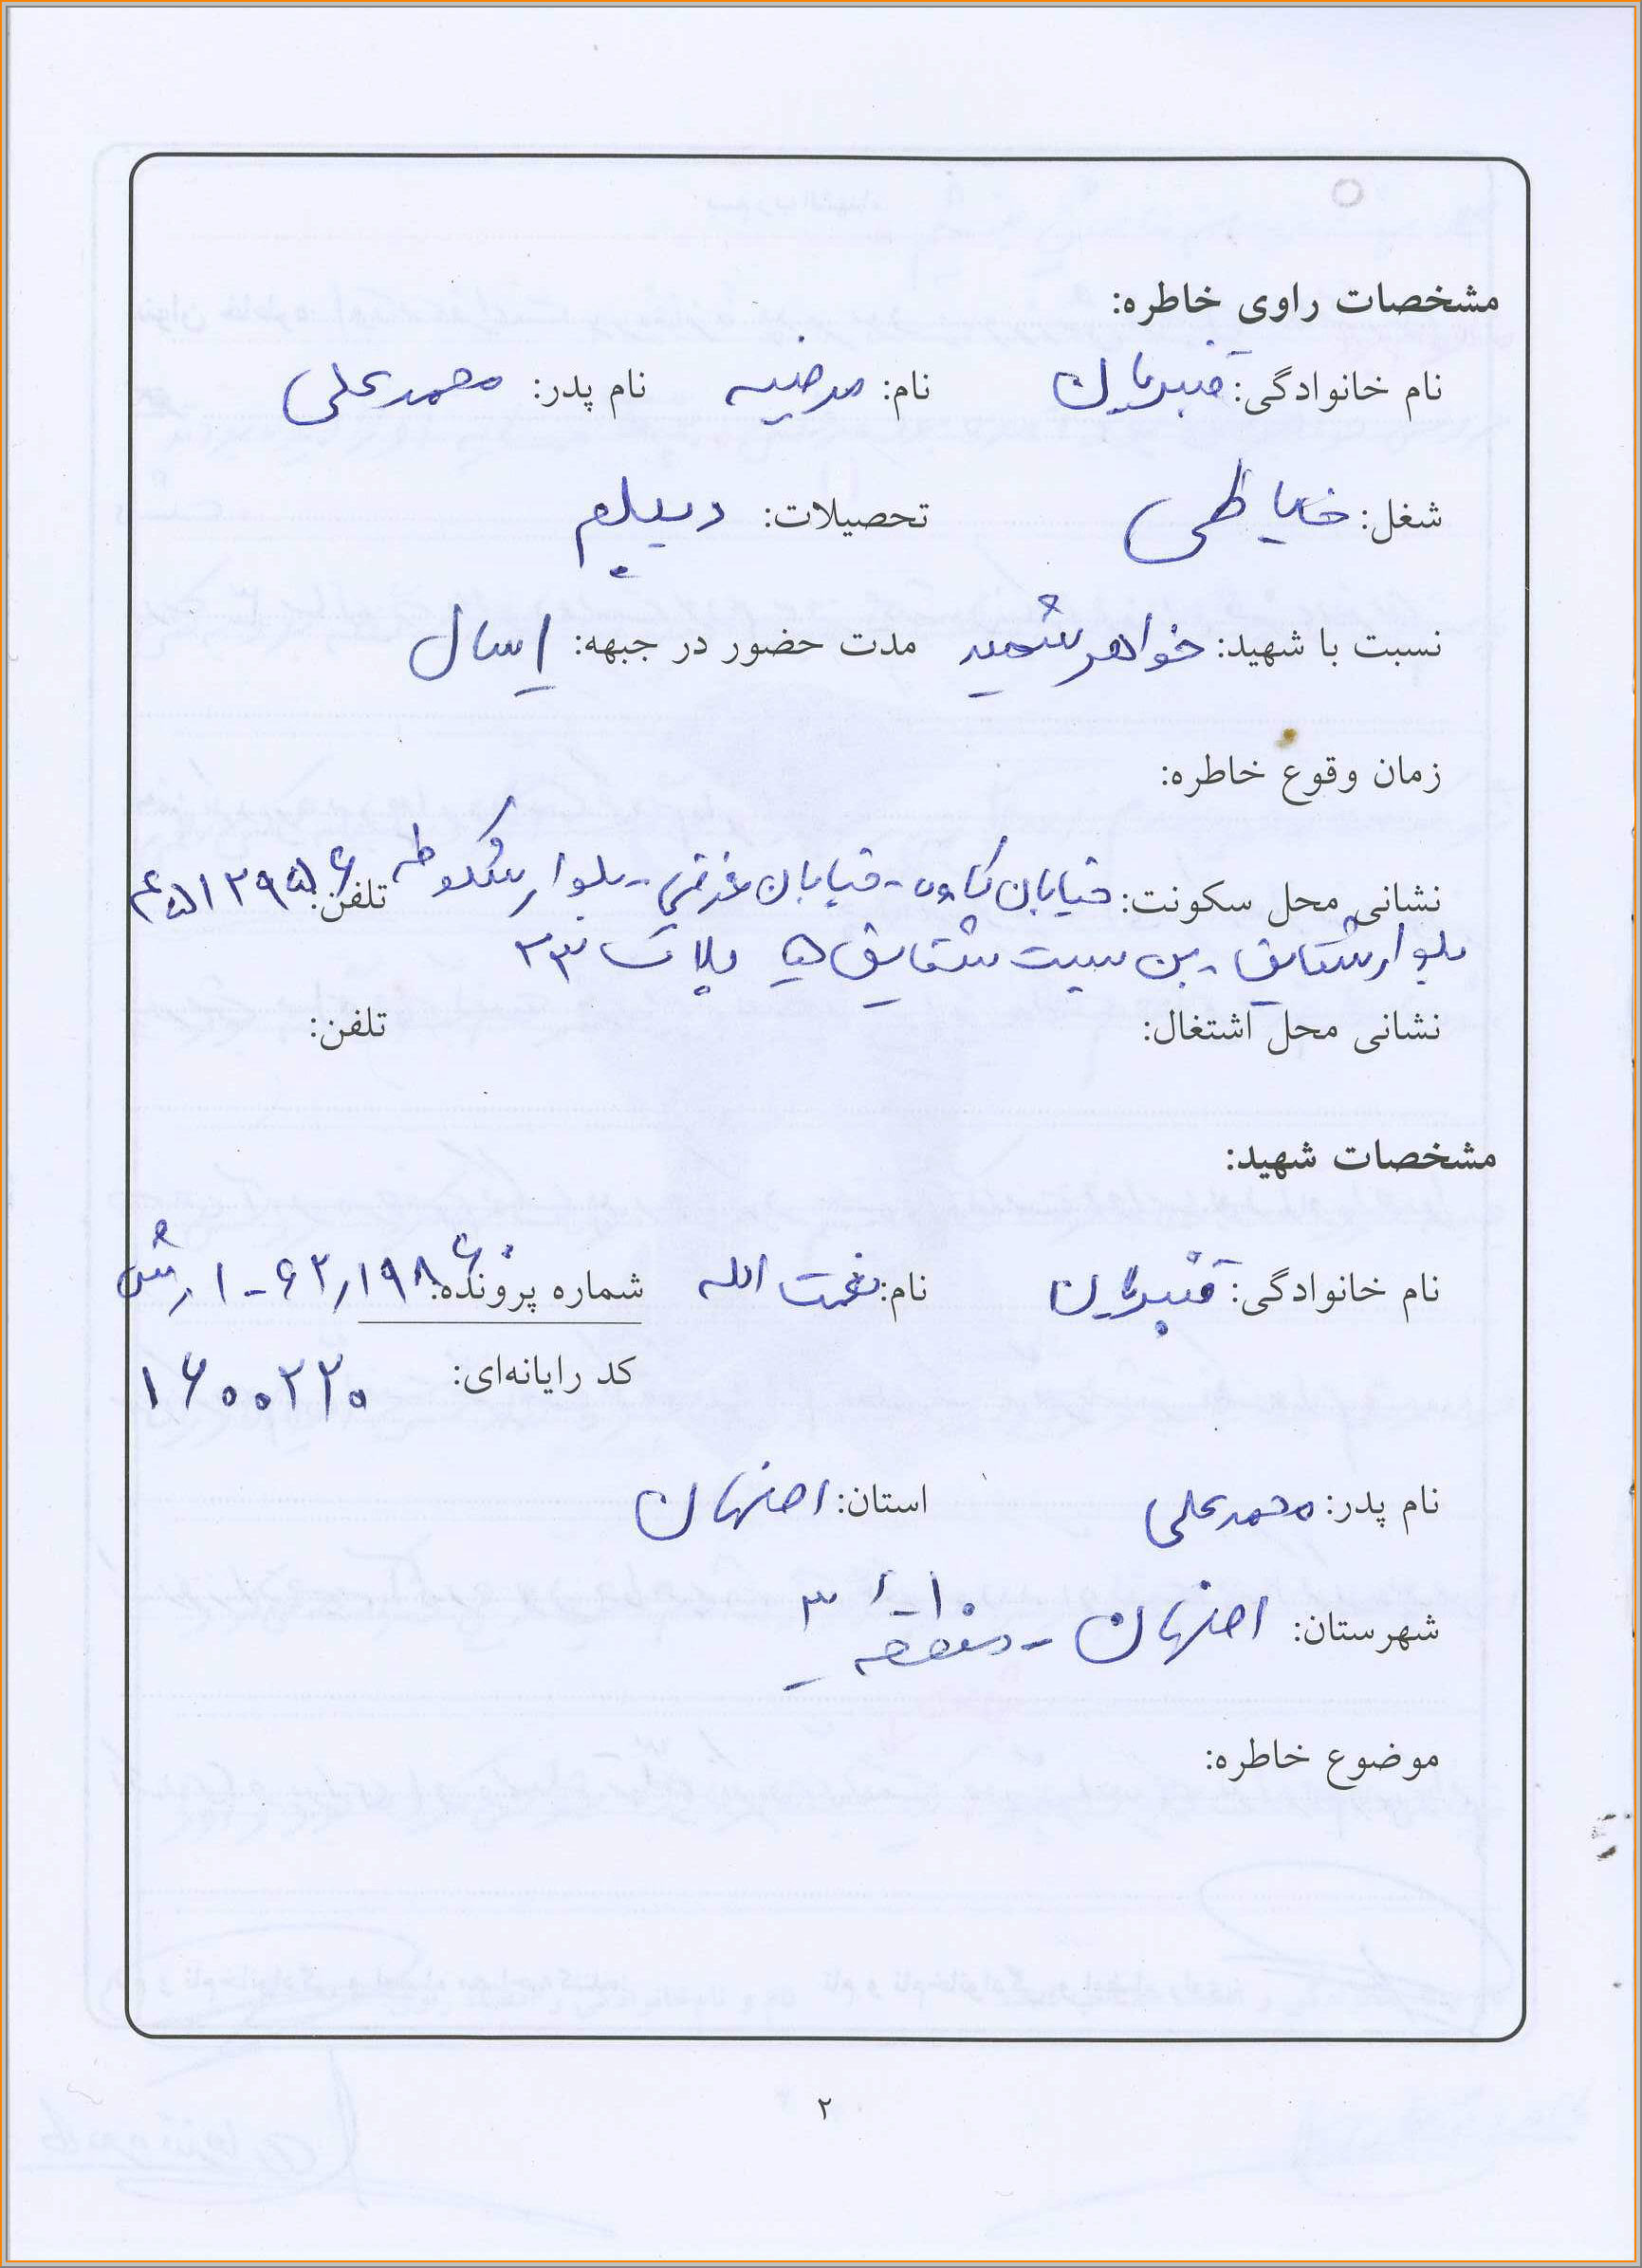 مشخصات راوی خاطره:
نام خانوادگی: قنبریان نام: مرضیه نام پدر: محمدعلی
شغل: خیاطی تحصیلات: دیپلم
نسبت با شهید: خواهر شهید مدت حضور در جبهه: ۱ سال
زمان وقوع خاطره:
نشانی محل سکونت: خیابان کاوه - خیابان غرضی - بلوار تلفن: ۴۵۱۲۹۵۶
بلوار شقایق - بن بست شقایق ۵ پلاک ۲۳
نشانی محل اشتغال: تلفن:
مشخصات شهید:
نام خانوادگی: قنبریان نام: نعمت الله شماره پرونده:
کد رایانه‌ای: ۱۶۰۰۲۲۰
نام پدر: محمدعلی استان: اصفهان
شهرستان: اصفهان - منطقه ۳
موضوع خاطره:
۲